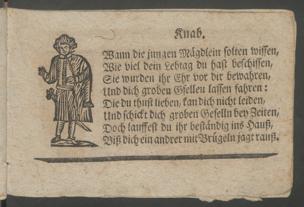 Knab.
Wann die jungen Mägdlein solten wissen,
Wie viel dein Lebtag du hast beschissen,
Sie wurden ihr Ehr vor dir bewahren,
Und dich groben Gsellen lassen fahren:
Die du thust lieben, kan dich nicht leiden,
Und schickt dich groben Geselln bey Zeiten,
Doch lauffest du ihr beständig ins Hauß,
Biß dich ein andrer mit Brügeln jagt rauß.